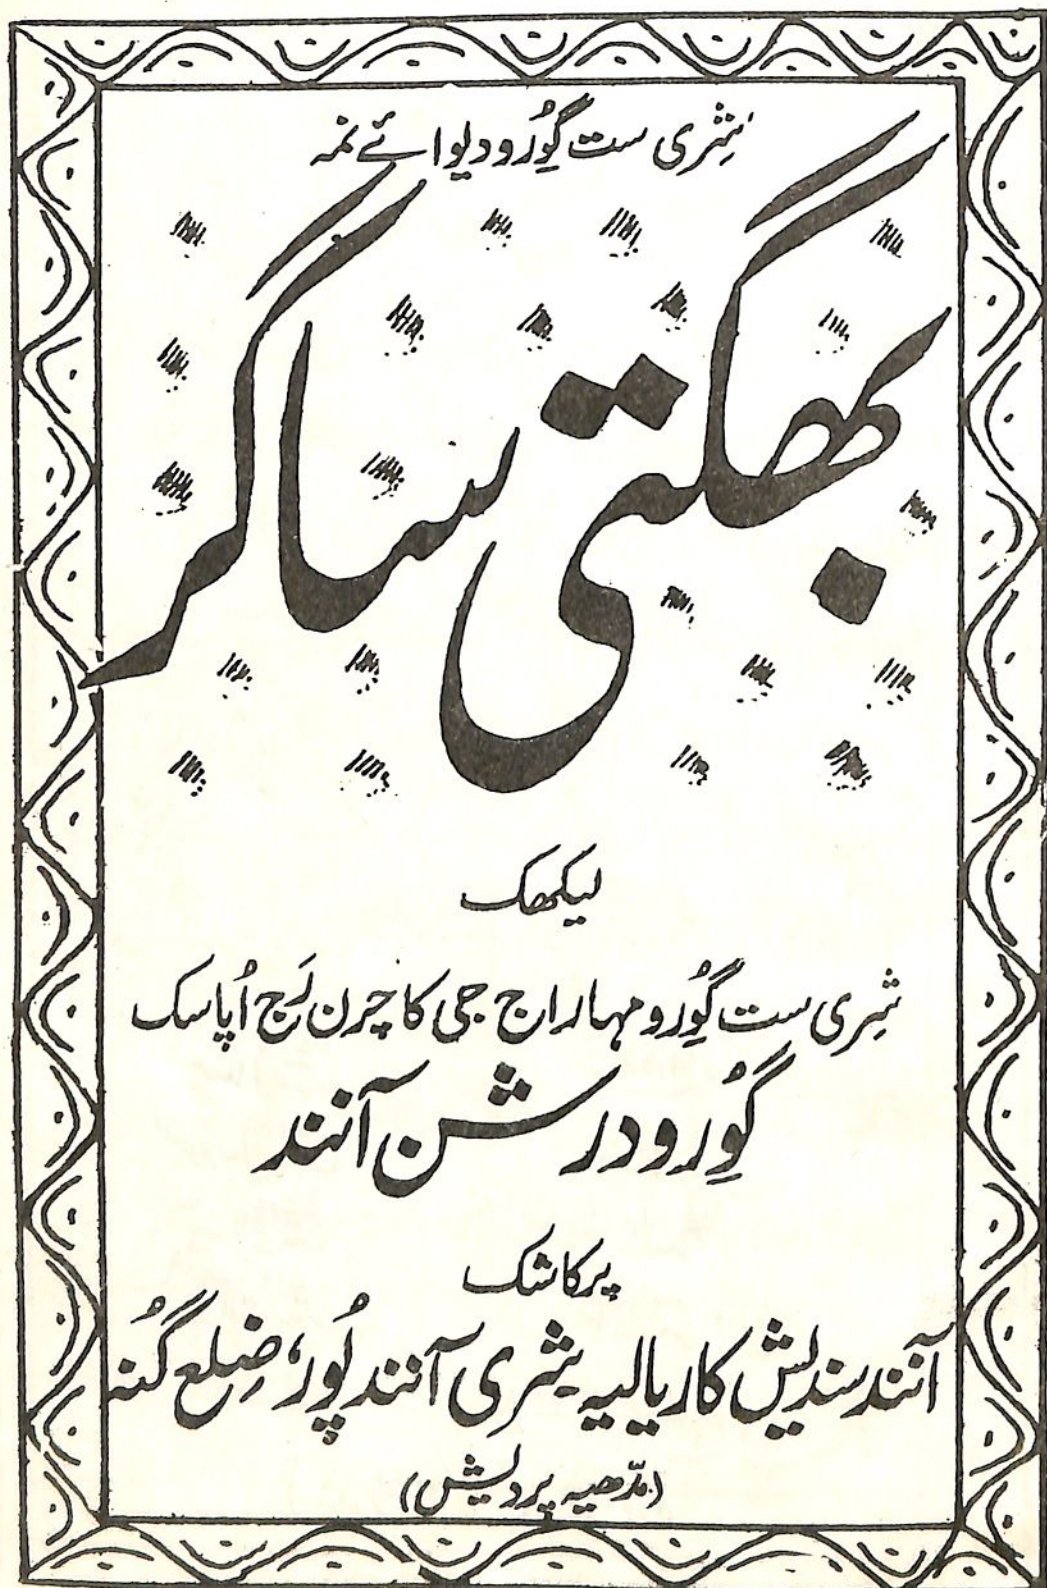 شِری ست گورُو دیوائے نمہ
بھگتی ساگر
لیکھک
شِری ست گورُو مہاراج جی کا چرن رَج اُپاسک
گورُو درشن آنند
پرکاشک
آنند سندیش کاریالیہ شِری آنند پُور، ضِلع گُنہ
(مدّھیہ پردیش)